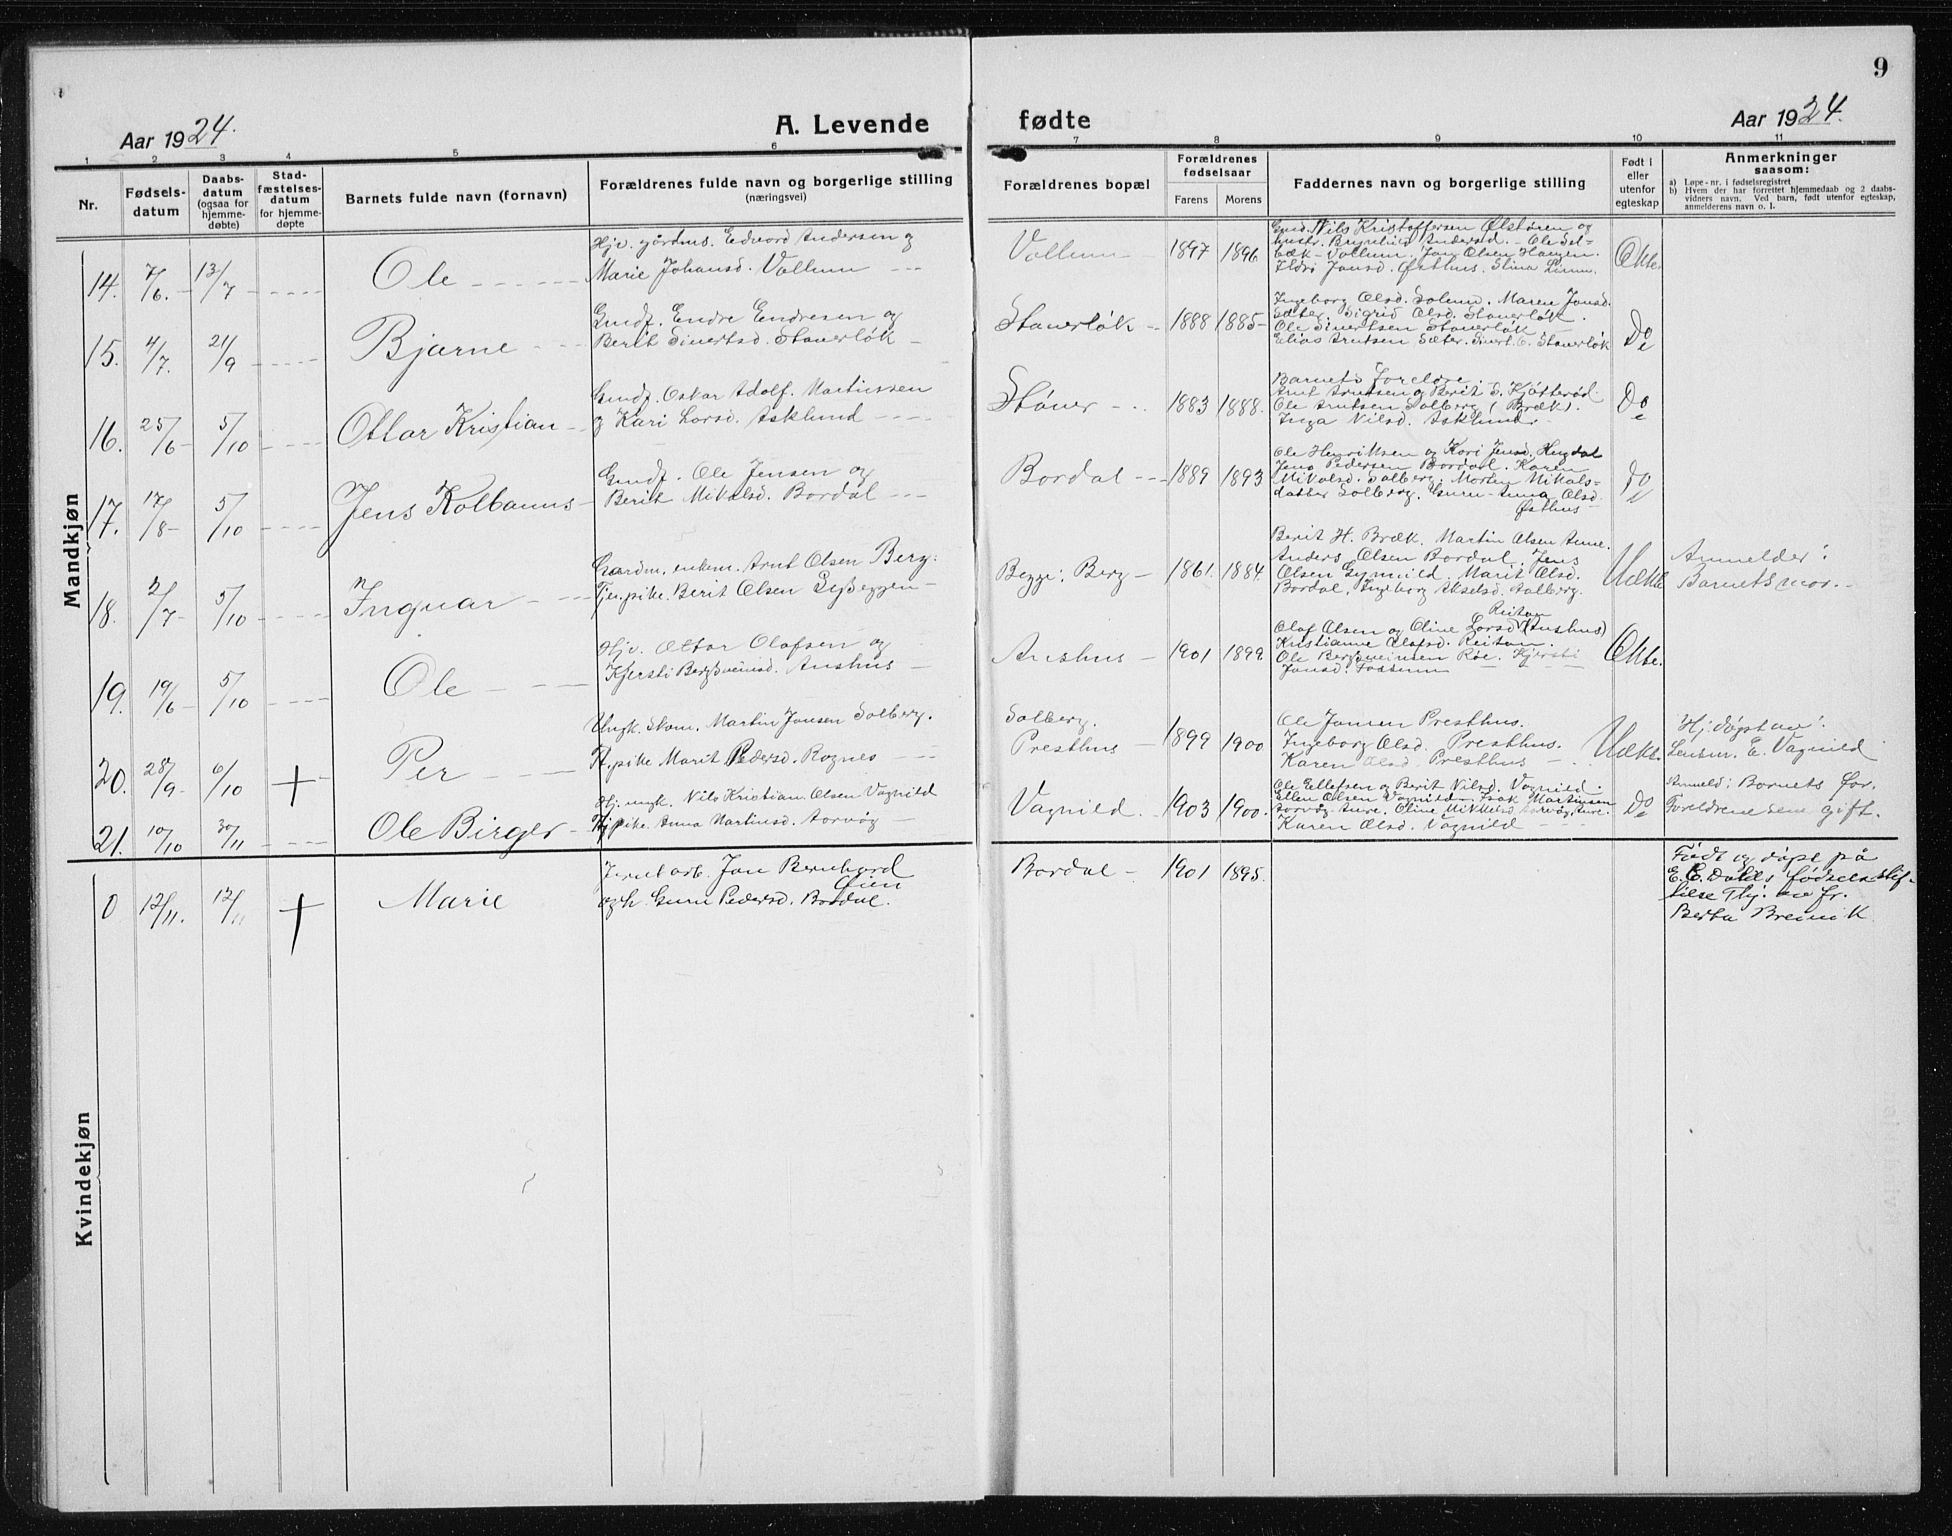 9
Aar 1924.
A. Levende
fødte
Aar 1924.
1 2 3 4 5 6 7 8 9 10 11
Nr.
Fødsels-
datum
Daabs-
datum
(ogsaa for
hjemme-
døbte)
Stad-
fæstelses-
datum
for hjemme-
døpte
Barnets fulde navn (fornavn)
Forældrenes fulde navn og borgerlige stilling
(næringsvei)
Forældrenes bopæl
Forældrenes
fødselsaar
Farens
Morens
Faddernes navn og borgerlige stilling
Født i
eller
utenfor
egteskap
Anmerkninger
saasom:
a) Løpe-nr. i fødselsregistret
b) Hvem der har forrettet hjemmedaab og 2 daabs-
vidners navn. Ved barn, født utenfor egteskap,
anmelderens navn o. l.
Mandkjøn
14. 7/6. 13/7 Ole
Hjv. gårdms. Edvard Andersen og
Marie Johansd. Vollum
Vollum 1897 1896
Gmd. Nils Kristoffersen Ølstøren og
hustr. Brynhild Andersd. Ole Sel-
bæk-Vollum. Jon Olsen Haugen.
Ildri Jonsd. Østhus. Stina Limm.
Ekte.
15. 4/7. 21/9 Bjarne
Gmdf. Endre Endresen og
Berit Sivertsd. Staverløk
Staverløk 1888 1885
Ingeborg Olsd. Solem. Maren Jonsd.
Sæter. Sigrid Olsd. Staverløk.
Ole Sivertsen Staverløk
Elias Arntsen Sæter. Sivert E. Staverløk
Do
16. 25/6 5/10 Ottar Kristian
Gmdf. Oskar Adolf Martinssen
og Kari Larsd. Asklund
Støver 1883 1888.
Barnets foreldre.
Arnt Arntsen og Berit S. Kjøtterød
Ole Arntsen Solberg (Bræk).
Inga Nilsd. Asklund.
Do
17. 17/8 5/10 Jens Kolbanus
Gmdf. Ole Jensen og
Berit Mikalsd. Bordal
Bordal 1889 1893
Ole Henriksen og Kari Jensd. Hugdal
Jens Pedersen Bordal. Karen
Mikalsd. Solberg. Morten Mikals-
datter Solberg. Guru-Anna Olsd.
Østhus
Do
18. 2/7 5/10 Ingvar
Gardm. enkem. Arnt Olsen Berg:
Tjen.pike Berit Olsen
Begge: Berg 1861. 1884.
Berit H. Bræk. Martin Olsen Aune.
Anders Olsen Bordal. Jens
Olsen Gynnild. Marit Olsd.
Bordal. Ingeborg Akselsd. Aalberg.
Uekte
Anmelder:
Barnets mor.
19. 19/6 5/10 Ole
Hjv. Ottar Olafsen og
Kjersti Bergsveinsd. Anshus
Anshus 1901 1899
Reitan
Olaf Olsen og Oline Larsd. (Anshus)
Kristianne Olafsd. Reitan.
Ole Bergsveinsen Røe. Kjersti
Jonsd. Fossum
Ekte.
20. 28/9 6/10 + Per
Ungk. Skom. Martin Jonsen Solberg.
Pike Marit Pedersd. Rognes
Solberg.
Presthus 1899 1900
Ole Jonsen Presthus.
Ingeborg Olsd. Presthus.
Karen Olsd. Presthus
Uekte.
Hj. døpt av:
Lensm. E. Vagnild
21. 10/10 30/11 Ole Birger
Hj. ungk. Nils Kristian Olsen Vagnild
Hj. pike. Anna Martinsd. Aarvåg
Vagnild. 1903 1900.
Ole Ellefsen og Berit Nilsd. Vagnild.
Ellen Olsen Vagnild. Isak Martinsen
Aarvåg, Aure. Oline Mikkelsd. Aarvåg, Aure.
Karen Olsd. Vagnild
Do
Anmeld: Barnets far.
Foreldrene sene gift.
Kvindekjøn
0 12/11. 12/11 + Marie
Jernb.arb. Jon Bernhard
Øien
og h. Guru Pedersd. Bordal.
Bordal 1901 1895.
Født og døpt på
E. C. Dahls fødselsstif-
telse Thj. av fr.
Berta Breivik